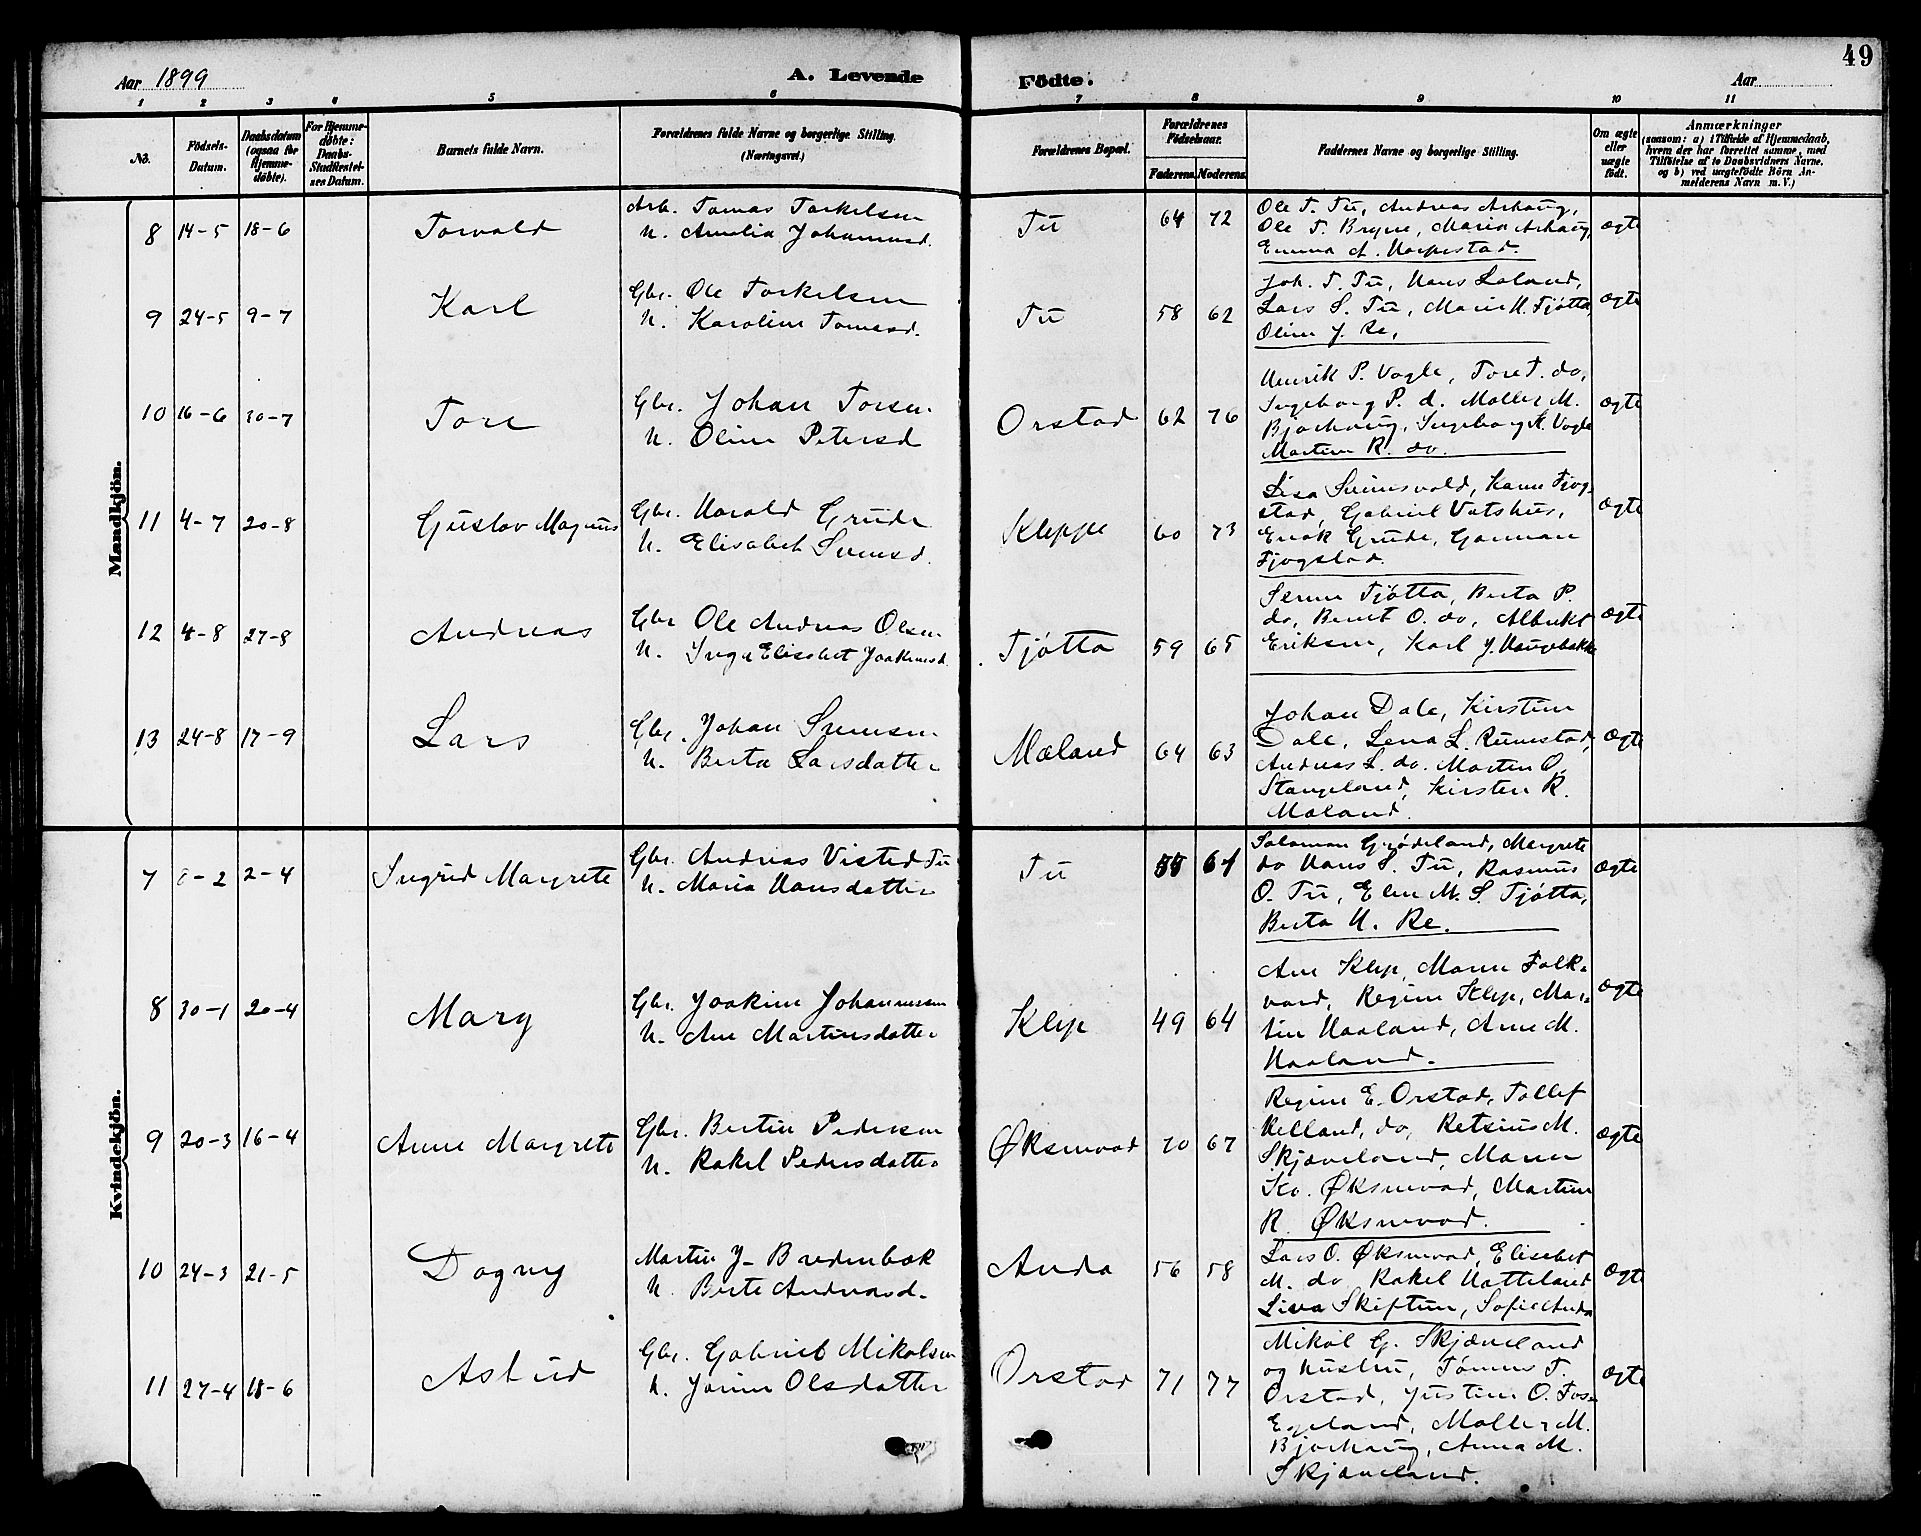 49
Aar 1899
A. Levende
Födte.
Aar
1 2 3 4 5 6 7 8 9 10 11
No.
Födsels-Datum.
Daabsdatum (ogsaa för Hjemme-döbte).
For Hjemme-döbte: Daabs-Stadfæstel-ses Datum.
Barnets fulde Navn.
Forældrenes fulde Navne og borgerlige Stilling.
(Næringsvei.)
Forældrenes Bopæl.
Forældrenes Födselsaar.
Faderens. Moderens.
Faddernes Navne og borgerlige Stilling.
Om ægte eller uægte födt.
Anmærkninger
(saasom: a) i Tilfælde af Hjemmedaab,
hvem der har forrettet samme, med
Tilföielse af to Daabsvidners Navne,
og b) ved uægtefödte Börn An-
melderens Navn m. V.)
Mandkjön.
8 14-5 18-6 Torvald
Arb. Tomas Torkelsen
H. Amalia Johannesd.
Tu 64 72
Ole T. Tu, Andreas Arhaug,
Ole T. Bryne, Maria Arhaug,
Emma A. Norpestad.
ægte
9 24-5 9-7 Karl
Gbr. Ole Torkelsen
H. Karoline Tomasd.
Tu 58 62
Joh. T. Tu, Hans Laland,
Lars S. Tu, Marie H. Tjøtta,
Oline J. Re,
ægte
10 16-6 30-7 Tore
Gbr. Johan Torsen
H. Oline Petersd
Orstad 62 76
Henrik P. Vagle, Tore T. do,
Ingeborg P. d. Maller M.
Bjorhaug, Ingeborg K. Vagle
Martin R. do.
ægte
11 4-7 20-8 Gustav Magnus
Gbr. Harald Grude
H. Elisabet Svensd.
Kleppe 60 73
Lisa Svinsvold, Karen Fjog-
stad, Gabriel Vatshus,
Enok Grude, Gorman
Fjogstad.
ægte
12 4-8 27-8 Andreas
Gbr Ole Andreas Olsen
H. Inger Elisabet Joakimsd.
Tjøtta 59 65
Serine Tjøtta, Berta P.
do, Bernt O. do, Albrekt
Eriksen, Karl J. Haugebakke
ægte
13 24-8 17-9 Lars
Gbr. Johan Svensen
H. Berta Larsdatter
Mæland 64 63
Johan Dale, Kirstine
Dale, Lena L. Runestad,
Andreas L. do. Morten O.
Stangeland, Kirsten R.
Mæland.
ægte
Kvindekjön.
7 -2 2-4 Ingrid Margrete
Gbr. Andreas Visted Tu
H. Maria Hansdatter
Tu 55 61
Salamon Grødeland, Margrete
do Hans S. Tu, Rasmus
O. Tu, Elen M. S. Tjøtta,
Berta H. Re.
ægte
8 30-1 20-4 Mary
Gbr. Joakim Johannessen
H. Ane Martinsdatter
Klep 49 64
Ane Klep, Maren Folk-
vord, Regine Klep, Mar-
tin Haaland, Anne M.
Haaland.
ægte
9 20-3 16-4 Anne Margrete
Gbr. Bertin Pedersen
H. Rakel Pedersdatter
Øksnevad 70 67
Regine E. Orstad, Tollef
Kelland, do, Retsius M.
Skjæveland, Maren
Kv. Øksnevad, Martin
R. Øksnevad.
ægte
10 24-3 21-5 Dagny
Martin J. Bredenbæk
H. Berte Andreasd.
Anda 56 58
Lars O. Øksnevad, Elisabet
M. do, Rakel Hatteland
Lina Skiftun, Sofie Anda
ægte
11 27-4 18-6 Astrid
Gbr. Gabriel Mikalsen
H. Jorine Olsdatter
Orstad 71 77
Mikal G. Skjæveland
og hustru, Tønnes T.
Orstad, Justine O. Tos-
Egeland, Maller M.
Bjorhaug, Anna M.
Skjæveland.
ægte